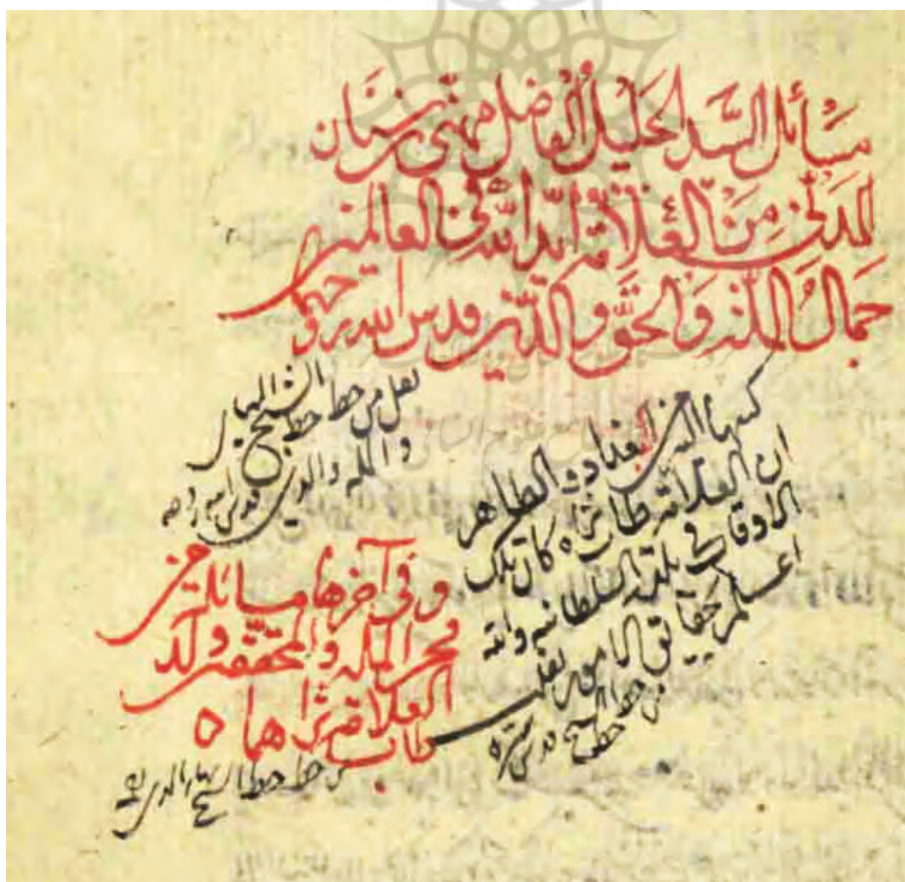 مسائل السيد الجليل الفاضل مهنى بن سنان
المدني من العلامة آية الله في العالمين
جمال الملة والحق والدين قدس الله روحهما
نقل من خط خط الشيخ البهائي
والملة والدين قدس الله روحه
كتبها إلى من بغداد والظاهر
ان العلامة طاب ثراه كان تلك
الاوقات في بلدة السلطانية والله
اعلم بحقايق الامور نقل
من خط خط الشيخ قدس سره
وفي آخرها مسائله من
فخر الملة والمحققين ولد
العلامة طاب ثراهما ه
من خط خط الشيخ بهاء الدين